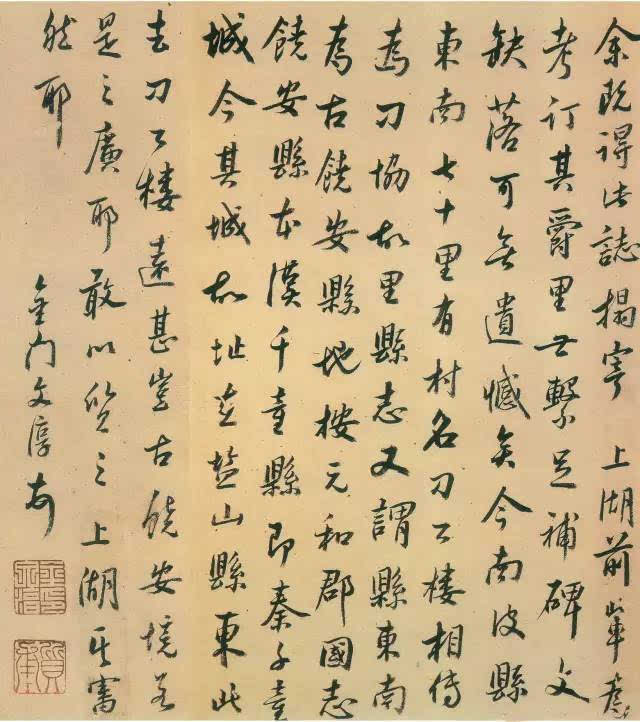 余既得此誌榻寄上湖前輩為
考訂其爵里世繫足補碑文
缺落可無遺憾矣今南皮縣
東南七十里有村名刁公樓相傳
為刁協故里縣志又謂縣東南
為古饒安縣地按元和郡國志
饒安縣本漢千童縣即秦千童
城今其城故址在鹽山縣東此
去刁公樓遠甚豈古饒安境若
是之廣耶敢以質之上湖其審
然耶
金門文淳
質甫